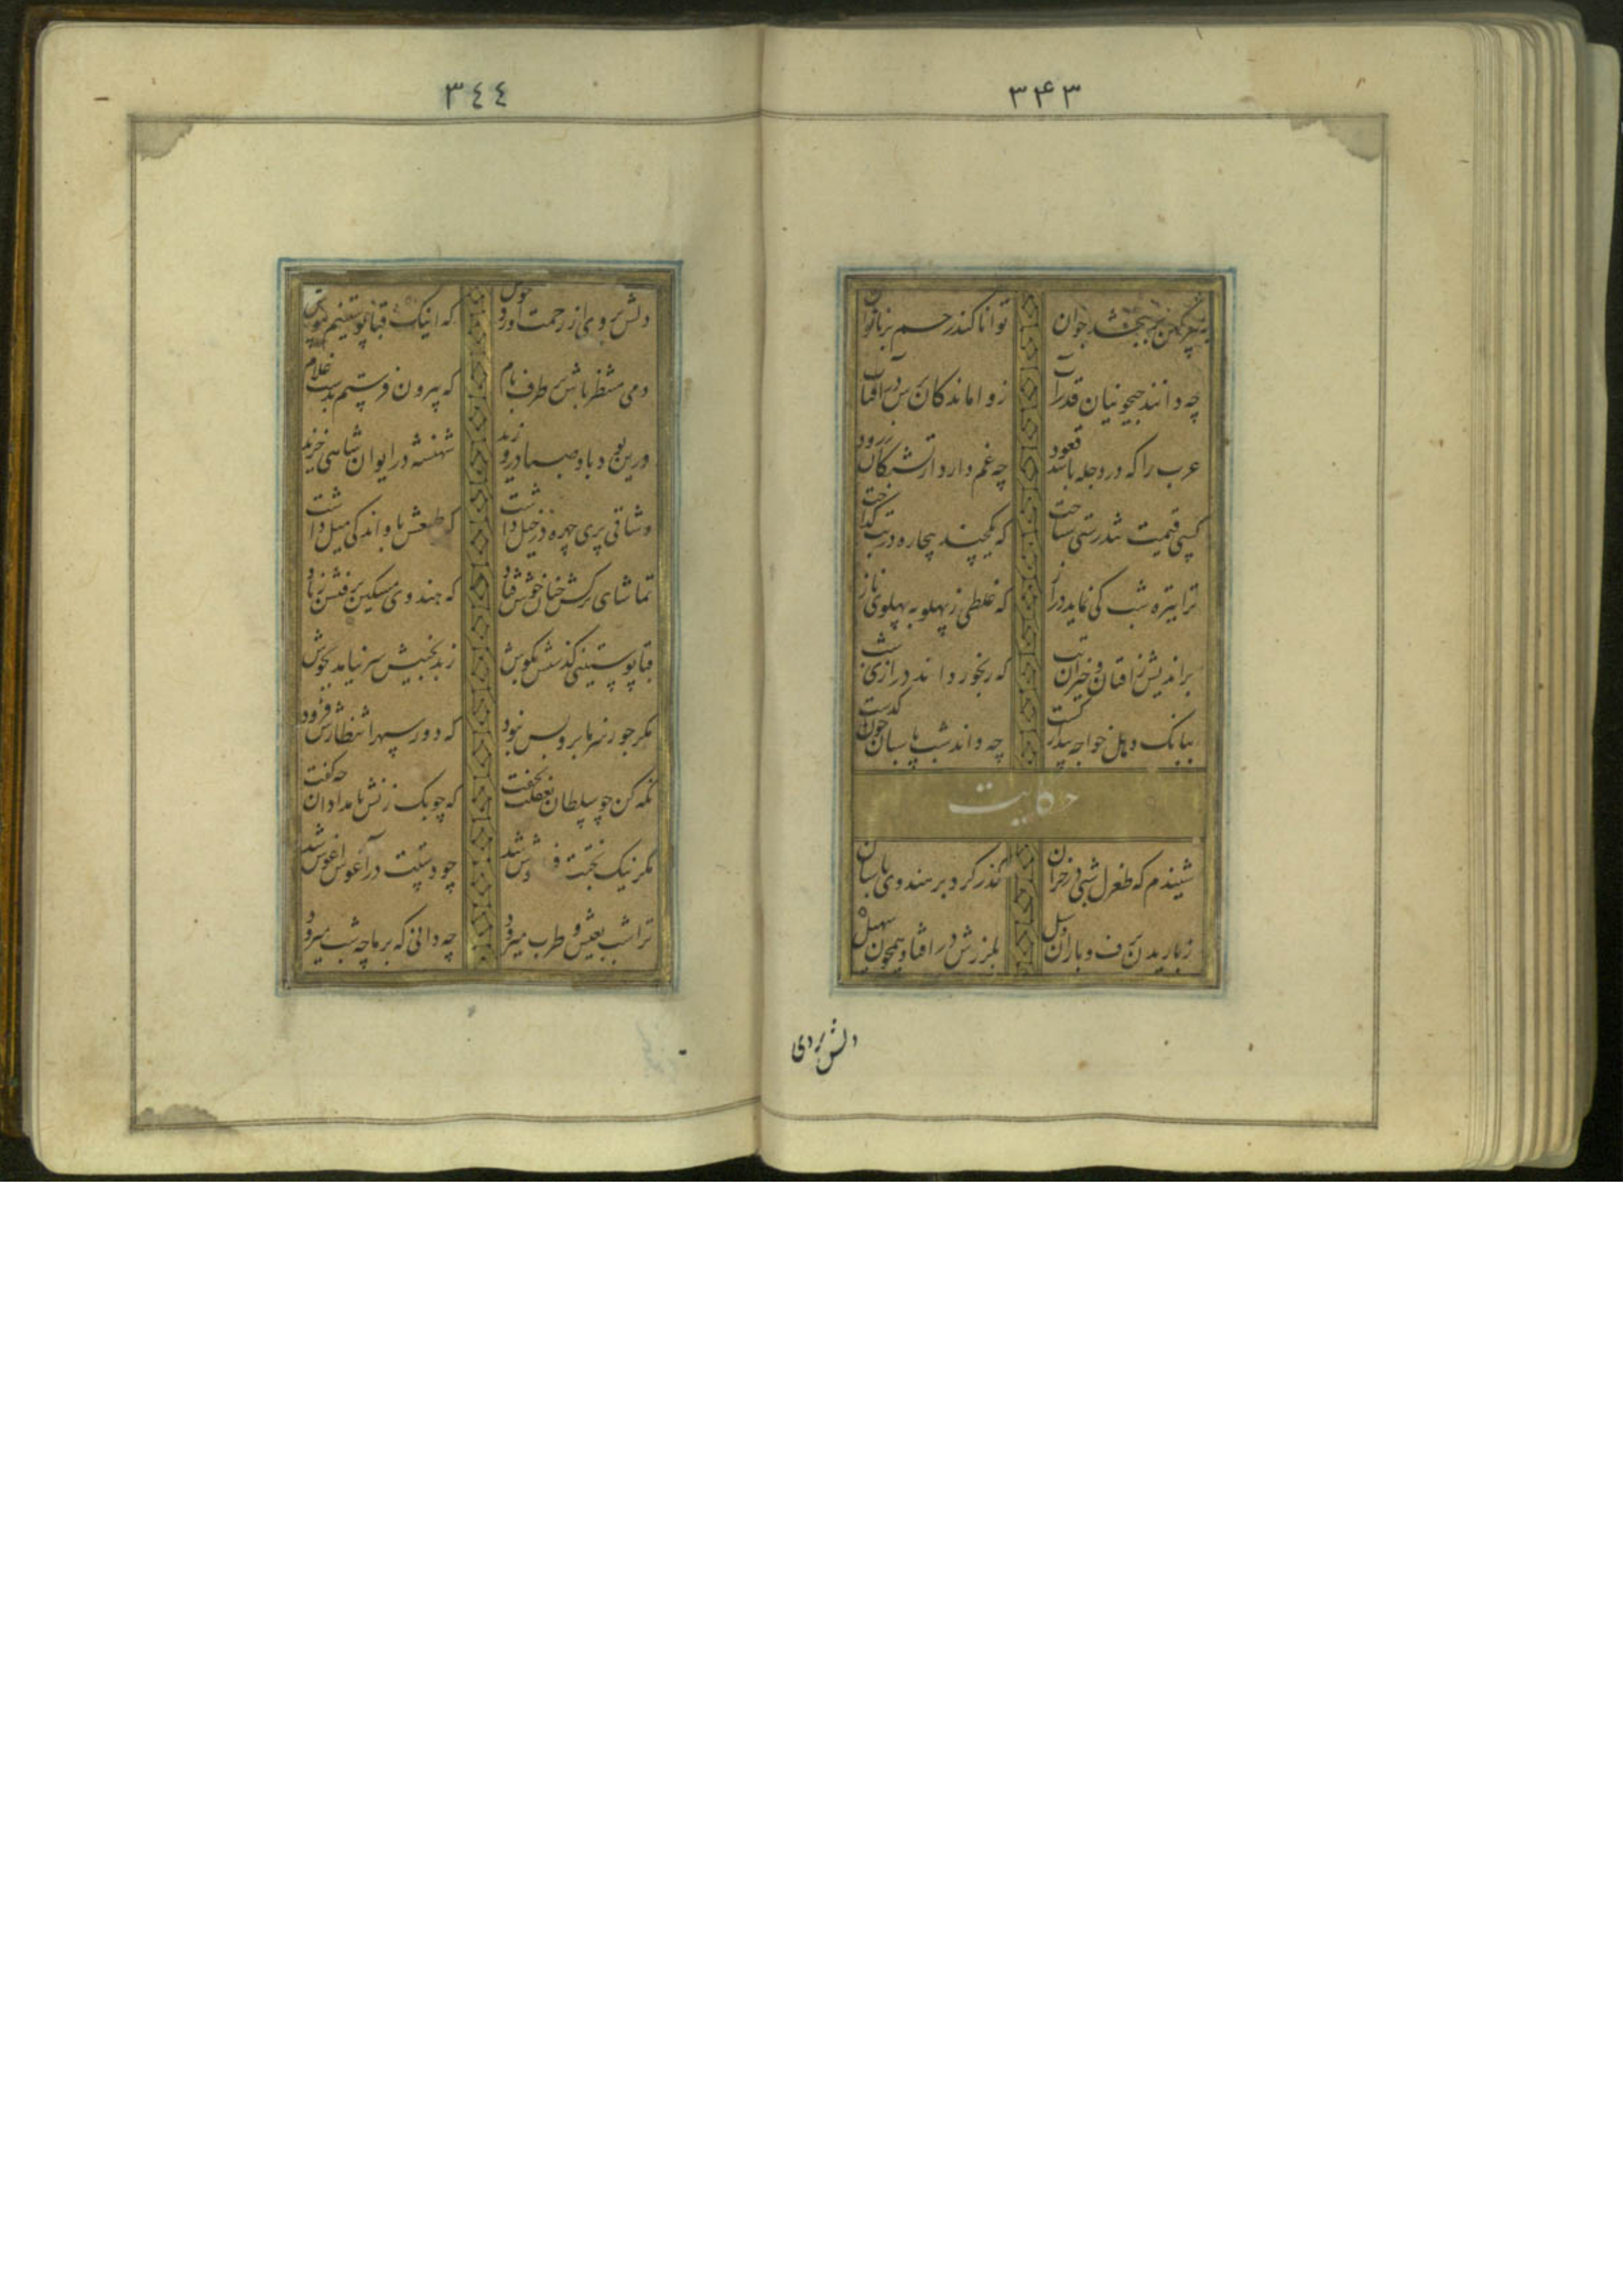 ٣۴٣
به پیر کهن بر ببخشد جوان توانا کند رحم بر ناتوان
چه دانند جیحونیان قدر آب ز واماندگان پرس در آفتاب
عرب را که در دجله باشد قعود چه غم دارد از تشنگان زرود
کسی قیمت تندرستی شناخت که یکچند بیچاره در تب گداخت
ترا تیره شب کی نماید دراز که غلطی ز پهلو به پهلوی ناز
براندیش ز افتان و خیزان تب که رنجور داند درازی شب
ببانگ دهل خواجه بیدار گشت چه داند شب پاسبان چون گذشت
حکایت
شنیدم که طغرل شبی در خزان گذر کرد بر هندوی پاسبان
ز باریدن برف و باران و سیل بلرزش در افتاده همچون سهیل
دلش بر وی
٣٤٤
دلش بر وی از رحمت آورد جوش که اینک قبا پوستینم بپوش
دمی منتظر باش بر طرف بام که بیرون فرستم بدست غلام
درین بود و باد صبا در وزید شهنشه در ایوان شاهی خزید
وشاقی پری چهره در خیل داشت که طبعش باو اندکی میل داشت
تماشای ترکش چنان خوش فتاد که هندوی مسکین برفتش ز یاد
قبا پوستینی گذشتش بگوش ز بدبختیش سر نیامد بدوش
مگر جور سرما برو بس نبود که دور سپهر انتظارش فزود
نگه کن چو سلطان بغفلت بخفت که چوبک زنش بامدادان چه گفت
مگر نیک بختت فراموش شد چو دستت در آغوش آغوش شد
ترا شب بعیش و طرب میرود چه دانی که بر ما چه شب میرود